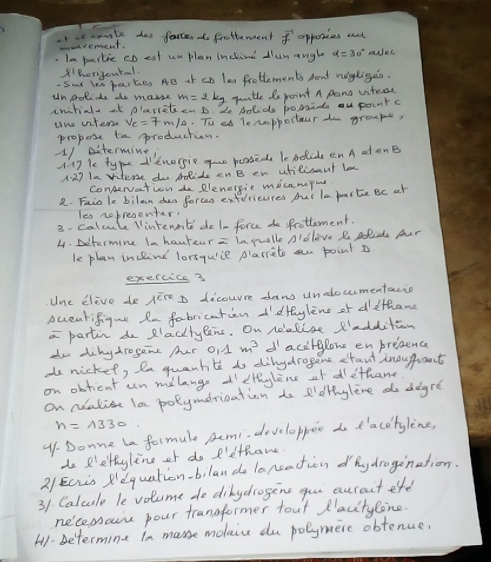 et il existe des forces de frottement f opposées au
mouvement.
- La partie CD est un plan incliné d'un angle α = 30° avec
l'horizontal.
- Sur les parties AB et CD les frottements sont négligés.
Un solide de masse m = 2 kg quitte le point A sans vitesse
initiale et s'arrête en D. Le solide possède au point C
une vitesse Vc = 7 m/s. Tu es le rapporteur du groupe,
propose ta production.
1/ Détermine,
1.1) le type d'énergie que possède le solide en A et en B
1.2) la vitesse du solide en B en utilisant la
conservation de l'énergie mécanique.
2. Fais le bilan des forces extérieures sur la partie BC et
les représenter.
3 - Calcule l'intensité de la force de frottement.
4 - Détermine la hauteur à laquelle s'élève le solide sur
le plan incliné lorsqu'il s'arrête au point D.
exercice 3
Une élève de 1ère D découvre dans un documentaire
scientifique la fabrication d'éthylène et d'éthane
à partir de l'acétylène. On réalise l'addition
du dihydrogène sur 0,1 m³ d'acétylène en présence
de nickel, la quantité de dihydrogène étant insuffisante
on obtient un mélange d'éthylène et d'éthane.
On réalise la polymérisation de l'éthylène de degré
n = 1330.
1/- Donne la formule semi-developpée de l'acétylène,
de l'éthylène et de l'éthane.
2/ Ecris l'équation-bilan de la réaction d'hydrogénation.
3/ Calcule le volume de dihydrogène qui aurait été
nécessaire pour transformer tout l'acétylène.
4/- Détermine la masse molaire du polymère obtenue.